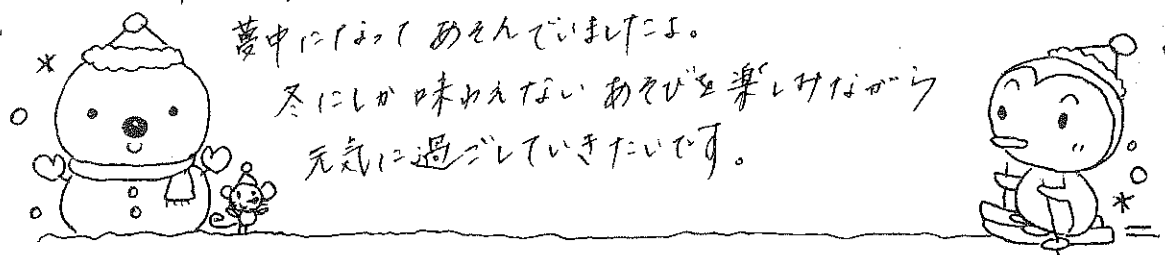 夢中になって あそんでいましたよ。
冬にしか 味わえない あそびを 楽しみながら
元気に過ごしていきたいです。